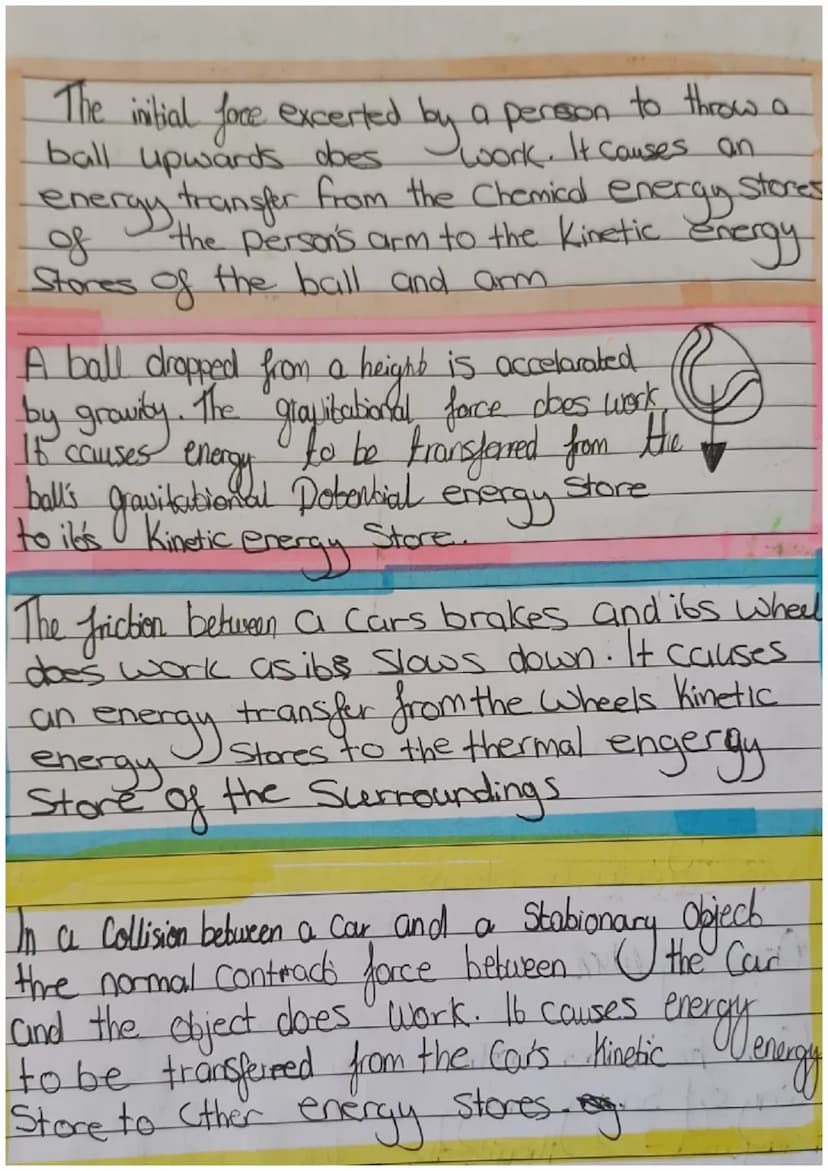 The initial force excerted by a person to throw a
ball upwards does work. It causes an
energy transfer from the Chemical energy stores
of the person's arm to the Kinetic energy
Stores of the ball and arm
A ball dropped from a height is accelarated
by gravity. The gravitational force does work
It causes energy to be transferred from the
ball's gravitational Potential energy Store
to it's Kinetic energy Store.
The friction between a cars brakes and its wheel
does work as its slows down. It causes
an energy transfer from the wheels Kinetic
energy Stores to the thermal engergy
Store of the Surroundings
In a Collision between a car and a Stationary object
thre normal contract force between the Car
and the object does work. It causes energy
to be transferred from the Car's Kinetic energy
Store to Other energy stores.